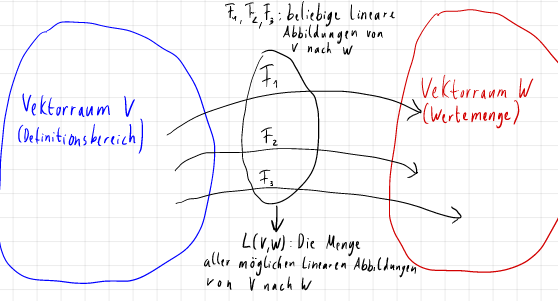 F₁, F₂, F₃: beliebige lineare
Abbildungen von
V nach W
Vektorraum V
(Definitionsbereich)
F₁
F₂
F₃
Vektorraum W
(Wertemenge)
L(V,W): Die Menge
aller möglichen Linearen Abbildungen
von V nach W